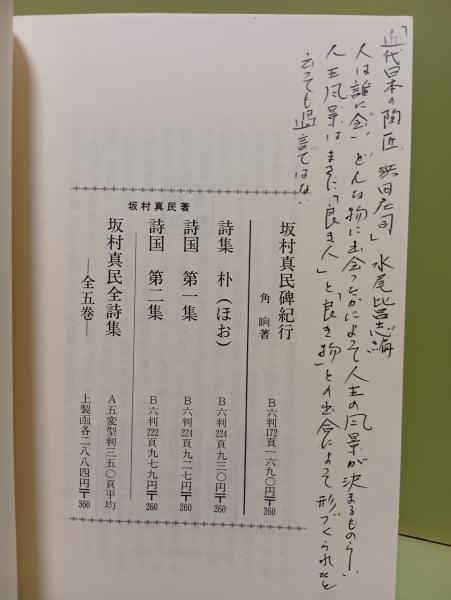 「近代日本の陶匠 浜田庄司」 水尾比呂志編
人は誰に会い、どんな物に出会ったかによって人生の風景が決まるものらしい
人生風景はまさに「良き人」と「良き物」との出会によって形づくられたと
云っても過言ではない
坂村真民碑紀行
角 晌著
B六判172頁一六九〇円〒260
坂村真民著
詩集 朴(ほお)
B六判224頁九三〇円〒260
詩国 第一集
B六判224頁九二七円〒260
詩国 第二集
B六判222頁九七九円〒260
坂村真民全詩集
―全五巻―
A五変型判三五〇頁平均
上製函各二八八四円〒360